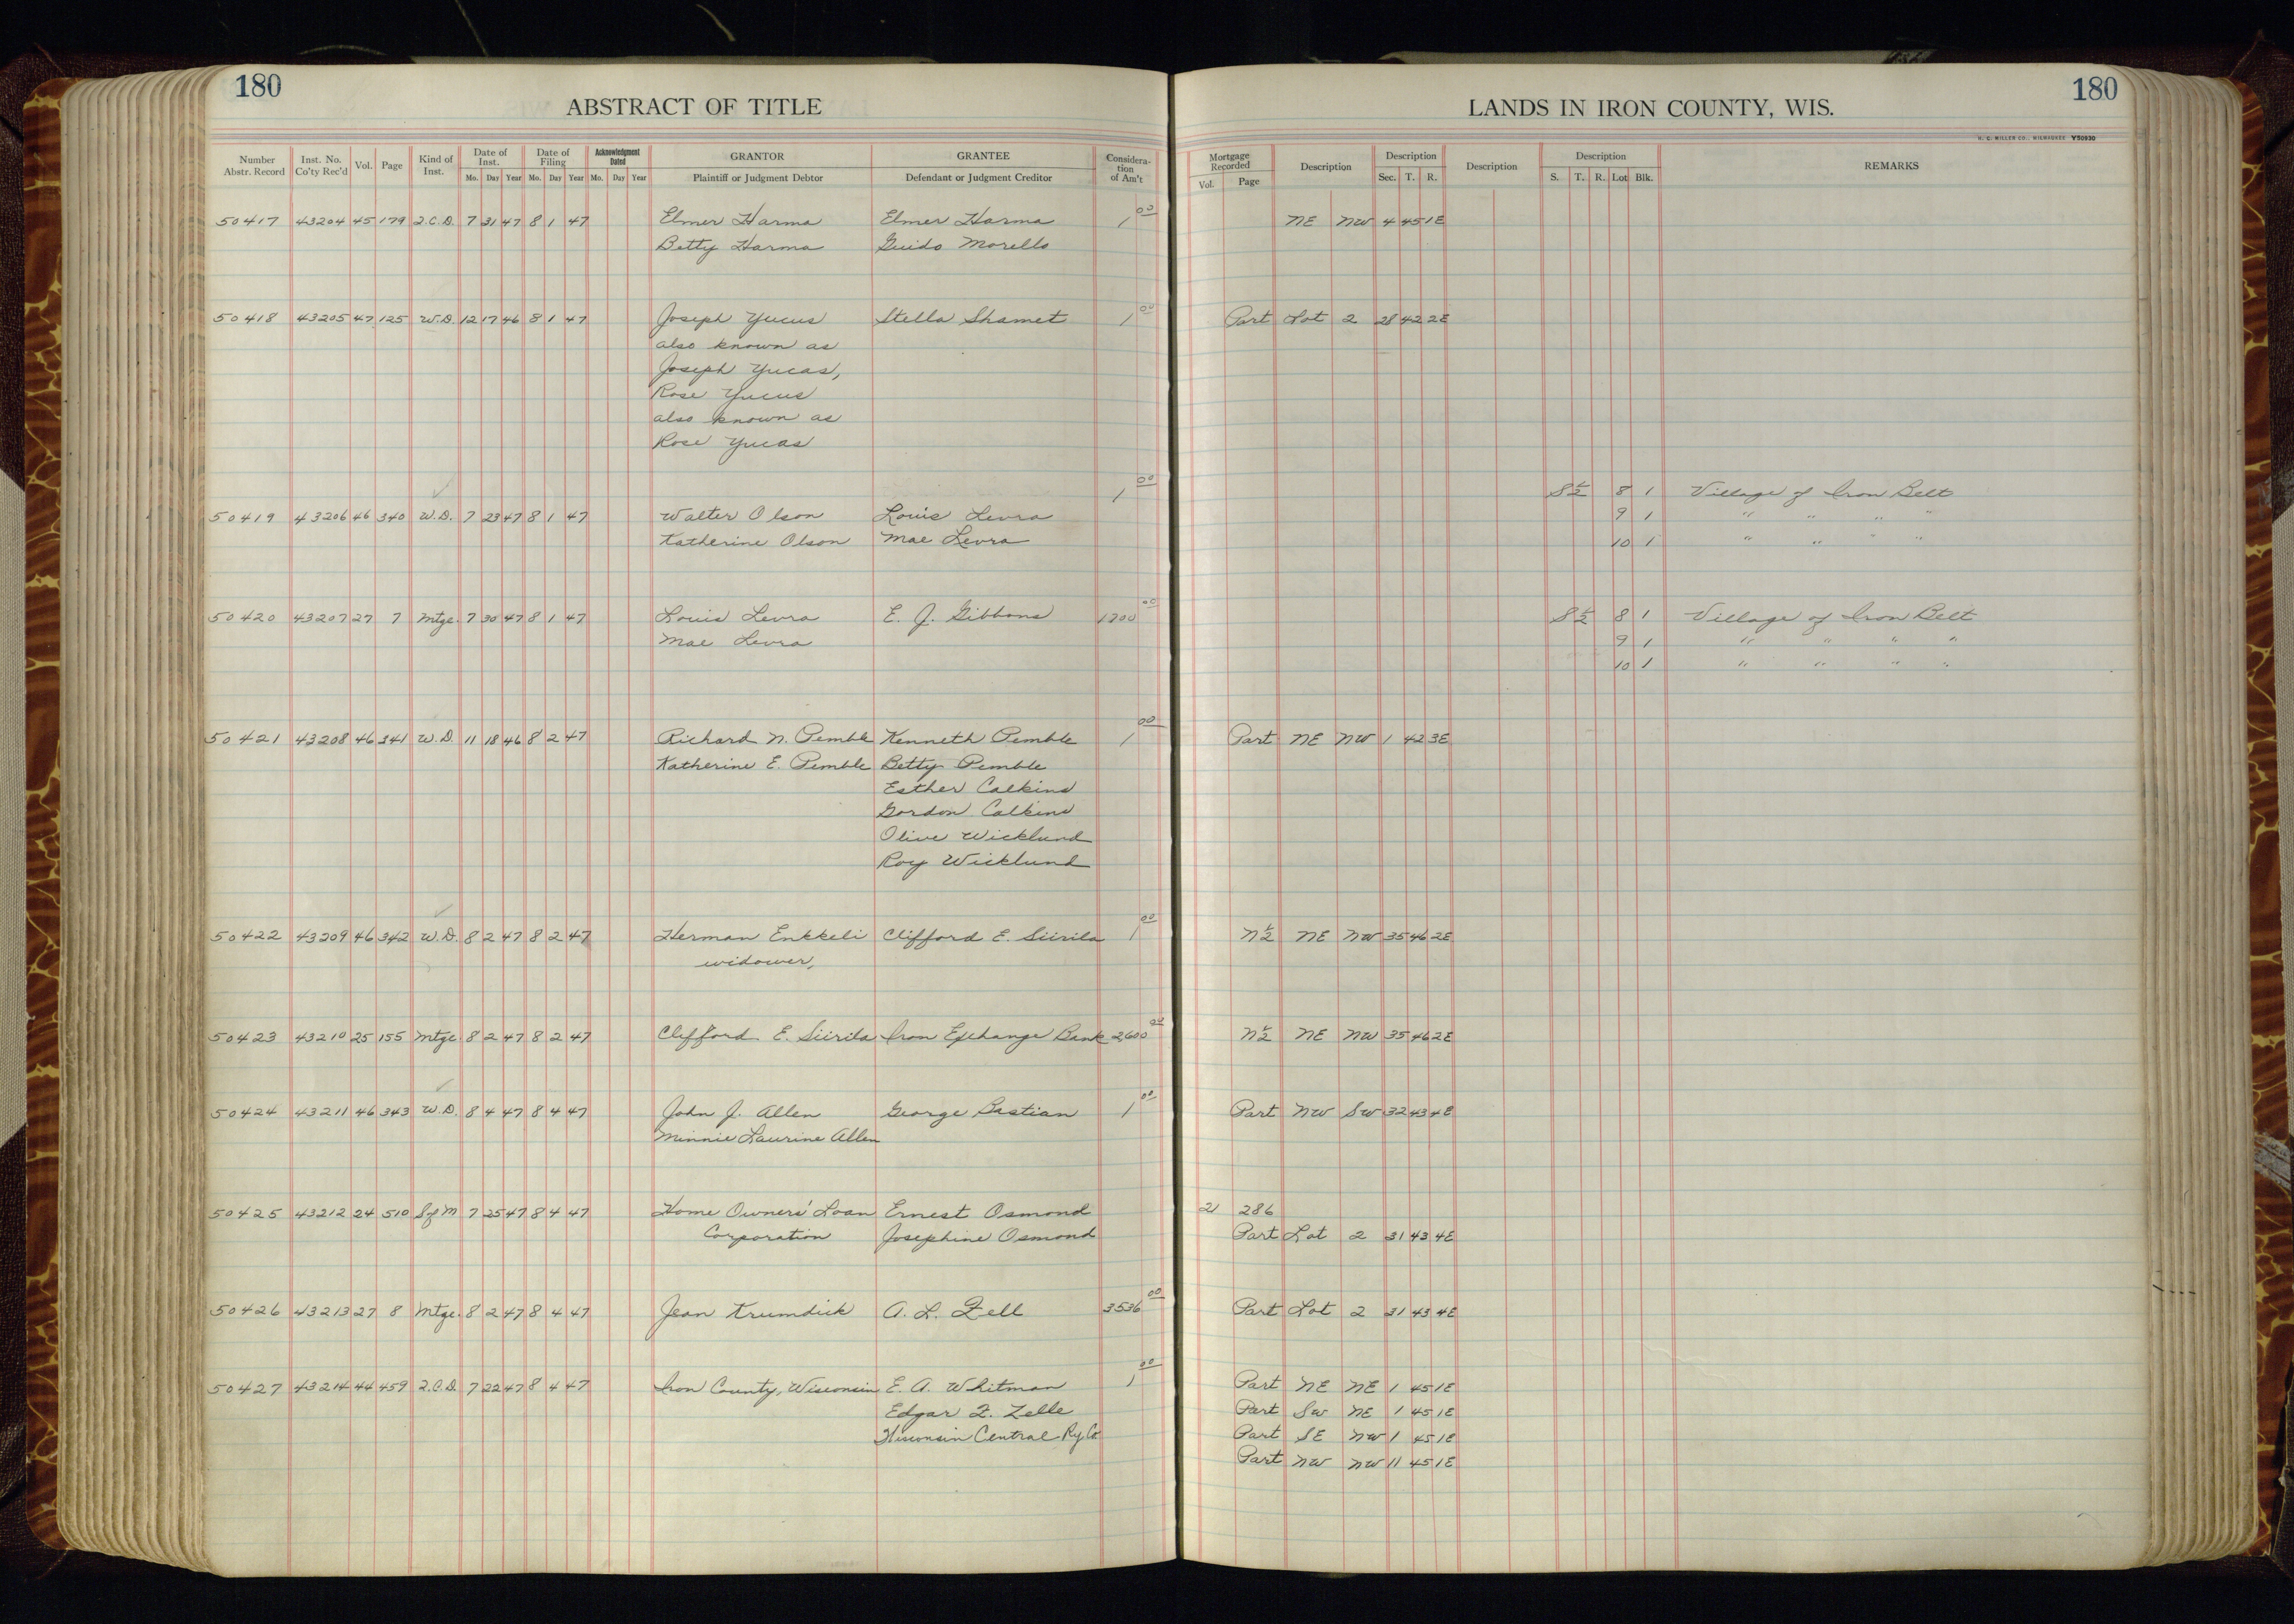 180
ABSTRACT OF TITLE
LANDS IN IRON COUNTY, WIS.
180
H. C. MILLER CO., MILWAUKEE Y50930
Number Abstr. Record Inst. No. Co'ty Rec'd Vol. Page Kind of Inst. Date of Inst. Mo. Day Year Date of Filing Mo. Day Year Acknowledgment Dated Mo. Day Year GRANTOR Plaintiff or Judgment Debtor GRANTEE Defendant or Judgment Creditor Consideration of Am't Mortgage Recorded Vol. Page Description Description Sec. T. R. Description Description S. T. R. Lot Blk. REMARKS
50417 43204 45 179 Q.C.D. 7 31 47 8 1 47 Elmer Harma Elmer Harma 1 00 NE NW 4 45 1E
Betty Harma Guido Morello
50418 43205 47 125 W.D. 12 17 46 8 1 47 Joseph Yucus Stella Shamet 1 00 Part Lot 2 28 42 2E
also known as
Joseph Yucas,
Rose Yucus
also known as
Rose Yucas
1 00 S 1/2 8 1 Village of Iron Belt
50419 43206 46 340 W.D. 7 23 47 8 1 47 Walter Olson Louis Levra 9 1 " " " "
Katherine Olson Mae Levra 10 1 " " " "
50420 43207 27 7 Mtge. 7 30 47 8 1 47 Louis Levra E. J. Gibbons 1700 00 S 1/2 8 1 Village of Iron Belt
Mae Levra 9 1 " " " "
10 1 " " " "
50421 43208 46 341 W.D. 11 18 46 8 2 47 Richard N. Pemble Kenneth Pemble 1 00 Part NE NW 1 42 3E
Katherine E. Pemble Betty Pemble
Esther Calkins
Gordon Calkins
Olive Wicklund
Roy Wicklund
50422 43209 46 342 W.D. 8 2 47 8 2 47 Herman Enkkeli Clifford E. Siirila 1 00 N 1/2 NE NW 35 46 2E
widower,
50423 43210 25 155 Mtge 8 2 47 8 2 47 Clifford E. Siirila Iron Exchange Bank 2,600 00 N 1/2 NE NW 35 46 2E
50424 43211 46 343 W.D. 8 4 47 8 4 47 John J. Allen George Bastian 1 00 Part NW SW 32 43 4E
Minnie Laurine Allen
50425 43212 24 510 S of M 7 25 47 8 4 47 Home Owners' Loan Ernest Osmond 21 286
Corporation Josephine Osmond Part Lot 2 31 43 4E
50426 43213 27 8 Mtge. 8 2 47 8 4 47 Jean Krumdick A. L. Zell 3536 00 Part Lot 2 31 43 4E
50427 43214 44 459 Q.C.D. 7 22 47 8 4 47 Iron County, Wisconsin E. A. Whitman 1 00 Part NE NE 1 45 1E
Edgar F. Zelle Part SW NE 1 45 1E
Wisconsin Central Ry. Co. Part SE NW 1 45 1E
Part NW NW 11 45 1E